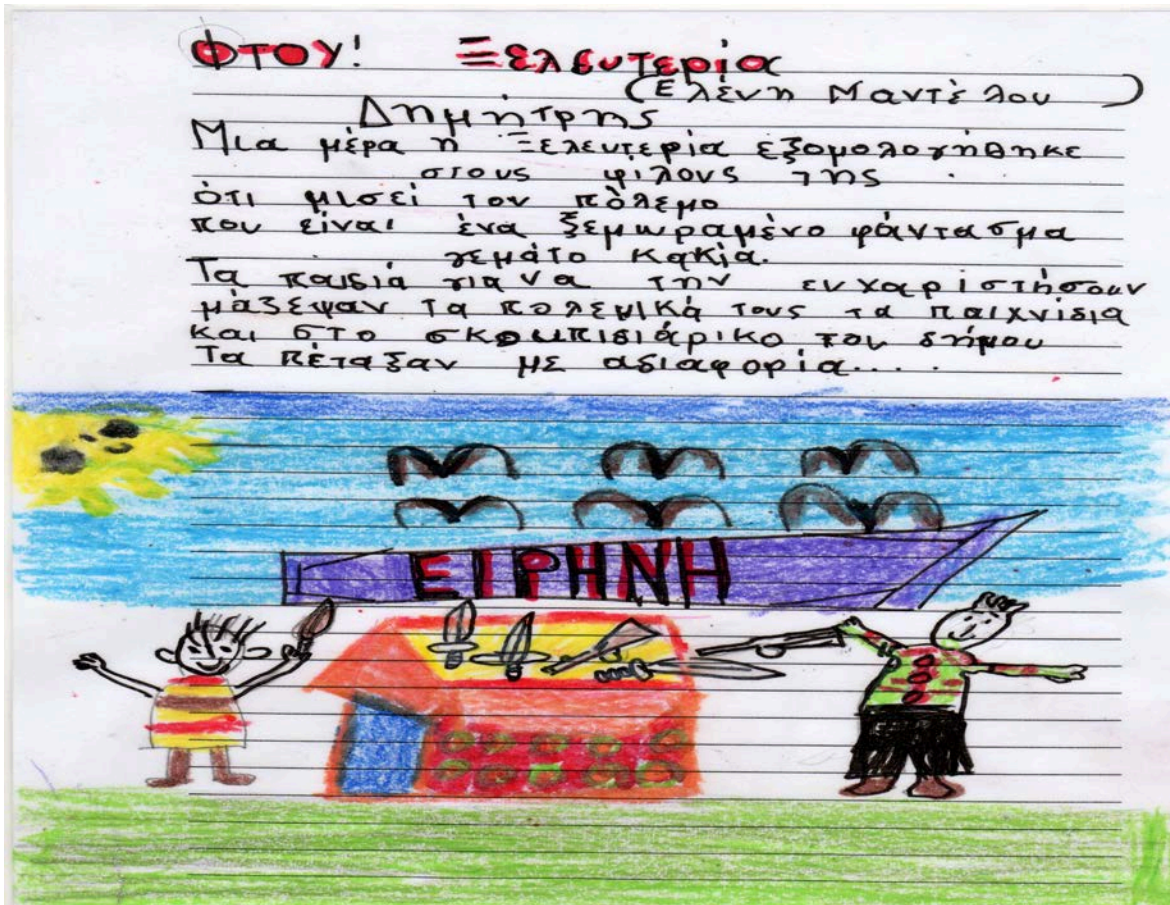 ΦΤΟΥ! Ξελευτερία
(Ελένη Μαντέλου)
Δημήτρης
Μια μέρα η Ξελευτερία εξομολογήθηκε
στους φίλους της
ότι μισεί τον πόλεμο
που είναι ένα ξεμωραμένο φάντασμα
γεμάτο κακία.
Τα παιδιά για να την ευχαριστήσουν
μάζεψαν τα πολεμικά τους τα παιχνίδια
και στο σκουπιδιάρικο του δήμου
Τα πέταξαν με αδιαφορία....
ΕΙΡΗΝΗ